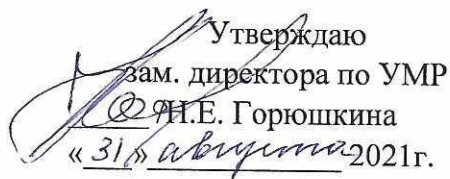 Утверждаю
зам. директора по УМР
Н.Е. Горюшкина
«31» августа 2021г.